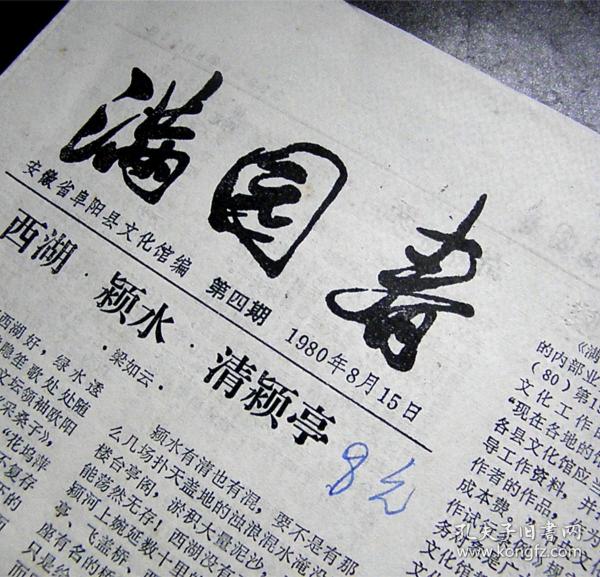 满园春
安徽省阜阳县文化馆编 第四期 1980年8月15日
西湖·颍水·清颍亭
·梁如云·
8元
西湖好，绿水逶
隐笙歌处处随
文坛领袖欧阳
《采桑子》
“花坞蘋
不复存
下的
颍水有清也有混，要不是有那
么几场扑天盖地的浊浪混水淹没
楼台亭阁，淤积大量泥沙，
能荡然无存！西湖没
颍河上蜿延数十里
亭、飞盖桥、西
盛有名的桥
只是
《满
的内部业
(80)第1
文化工作
“现在各地的
各县文化馆应当
导工作资料，并
作者的作品，
成本费。
作试
务
文化
孔夫子旧书网
www.kongfz.com